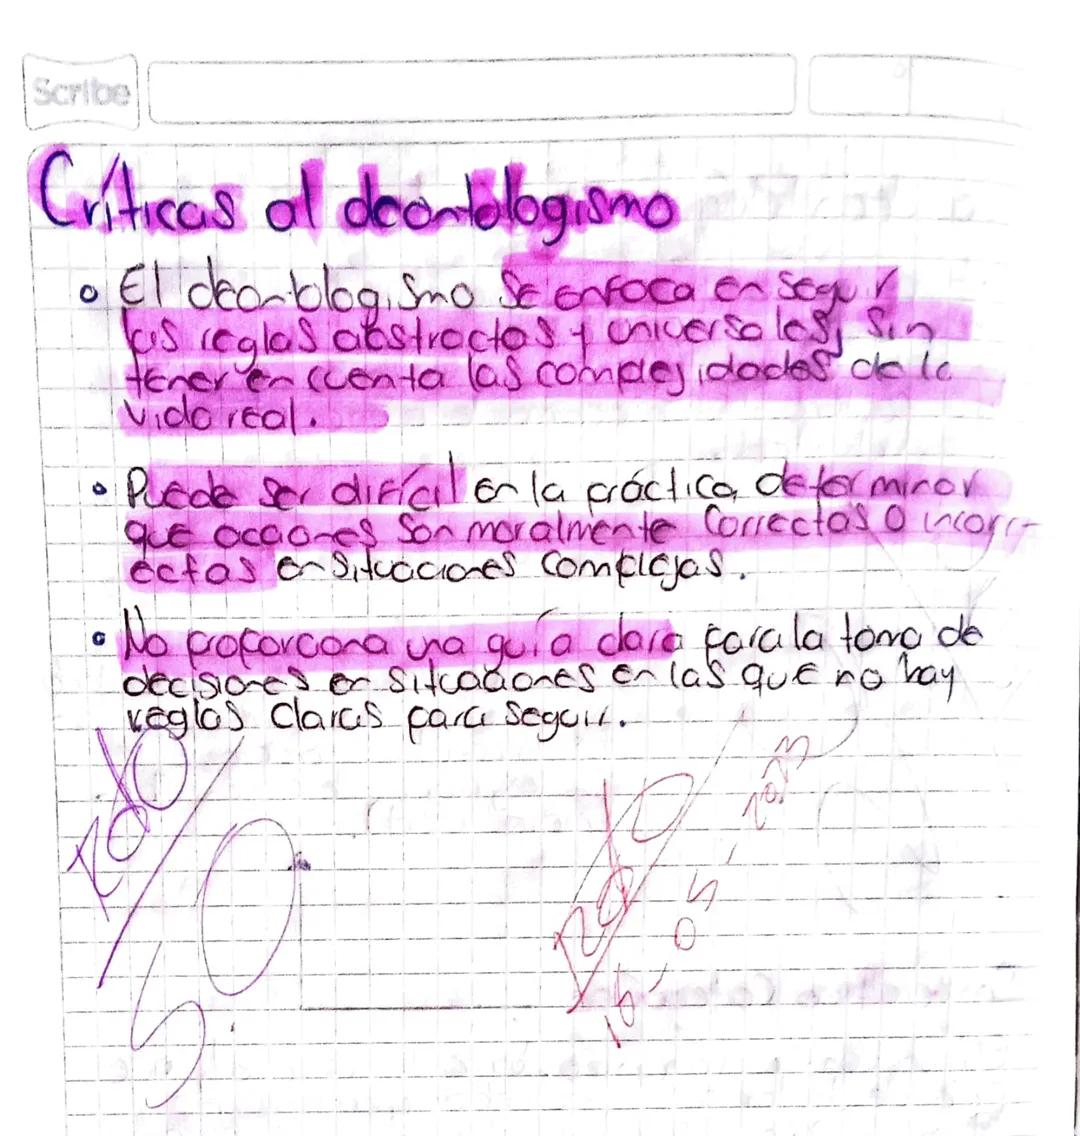 Scribe
Críticas al deontologismo
El deontologismo se enfoca en seguir
las reglas abstractas y universales, sin
tener en cuenta las complejidades de la
vida real.
Puede ser difícil en la práctica, determinar
que acciones son moralmente correctas o incorr-
ectas en situaciones complejas.
No proporciona una guía clara para la toma de
decisiones en situaciones en las que no hay
reglas claras para seguir.
Rdo
50
Rdo
16-05-2023